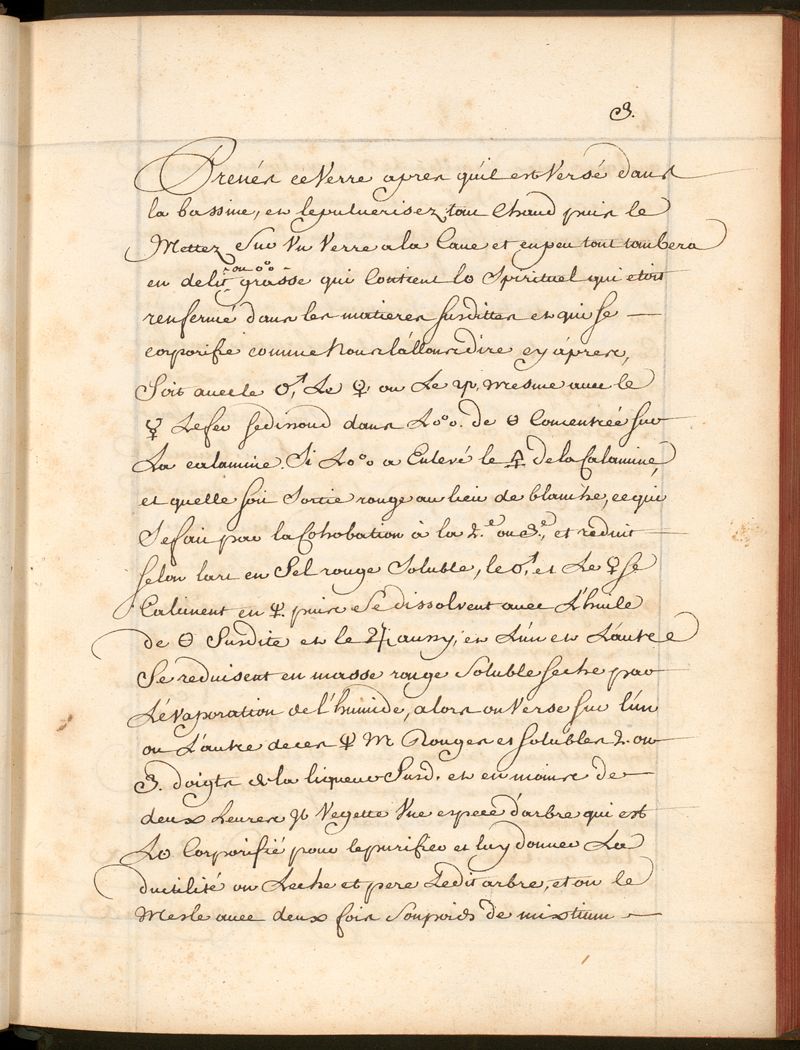 3.
Prenés ce Verre apres qu'il est Versé dans
la bassine, et le pulverisez tout Chaud puis le
Mettez Sur Un Verre a la Cave et en peu tout tombera
ou o°o
en delit grasse qui Contient lo Spirituel qui etoit
renfermé dans les matieres susdittes et qui se
corporifie comme Nous l'allons dire cy apres,
Soit avec le ♂, Le ♀ ou Le mesme avec le
☿ Le fer se dissoud dans Lo°o. de Θ Concentrée sur
La calamine. Si Lo°o a Enlevé le 🜍 de la Calamine,
et quelle soit Sortie rouge au lieu de blanche, ce qui
Se fait par la Cohobation à la 2.e ou 3.e, et reduit
selon lart en Sel rouge Soluble, le ♂ et Le ♀ se
Calcinent en Ψ. puis Se dissolvent avec L'huile
de Θ Susdite et le ♃ aussy, et L'un et L'autre
Se reduisent en masse rouge Soluble seche par
L'évaporation de l'humide, alors on Verse sur l'un
ou L'autre de ces Ψ M Rouges et solubles 2. ou
3. doigts de la liqueur Susd. et en moins de
deux heures Il Vegette Une espece d'arbre qui est
Lo Corporifié pour le purifier et luy donner La
ductilité on Seche et pese Ledit arbre, et on le
Mesle avec deux fois Son poids de mixtium